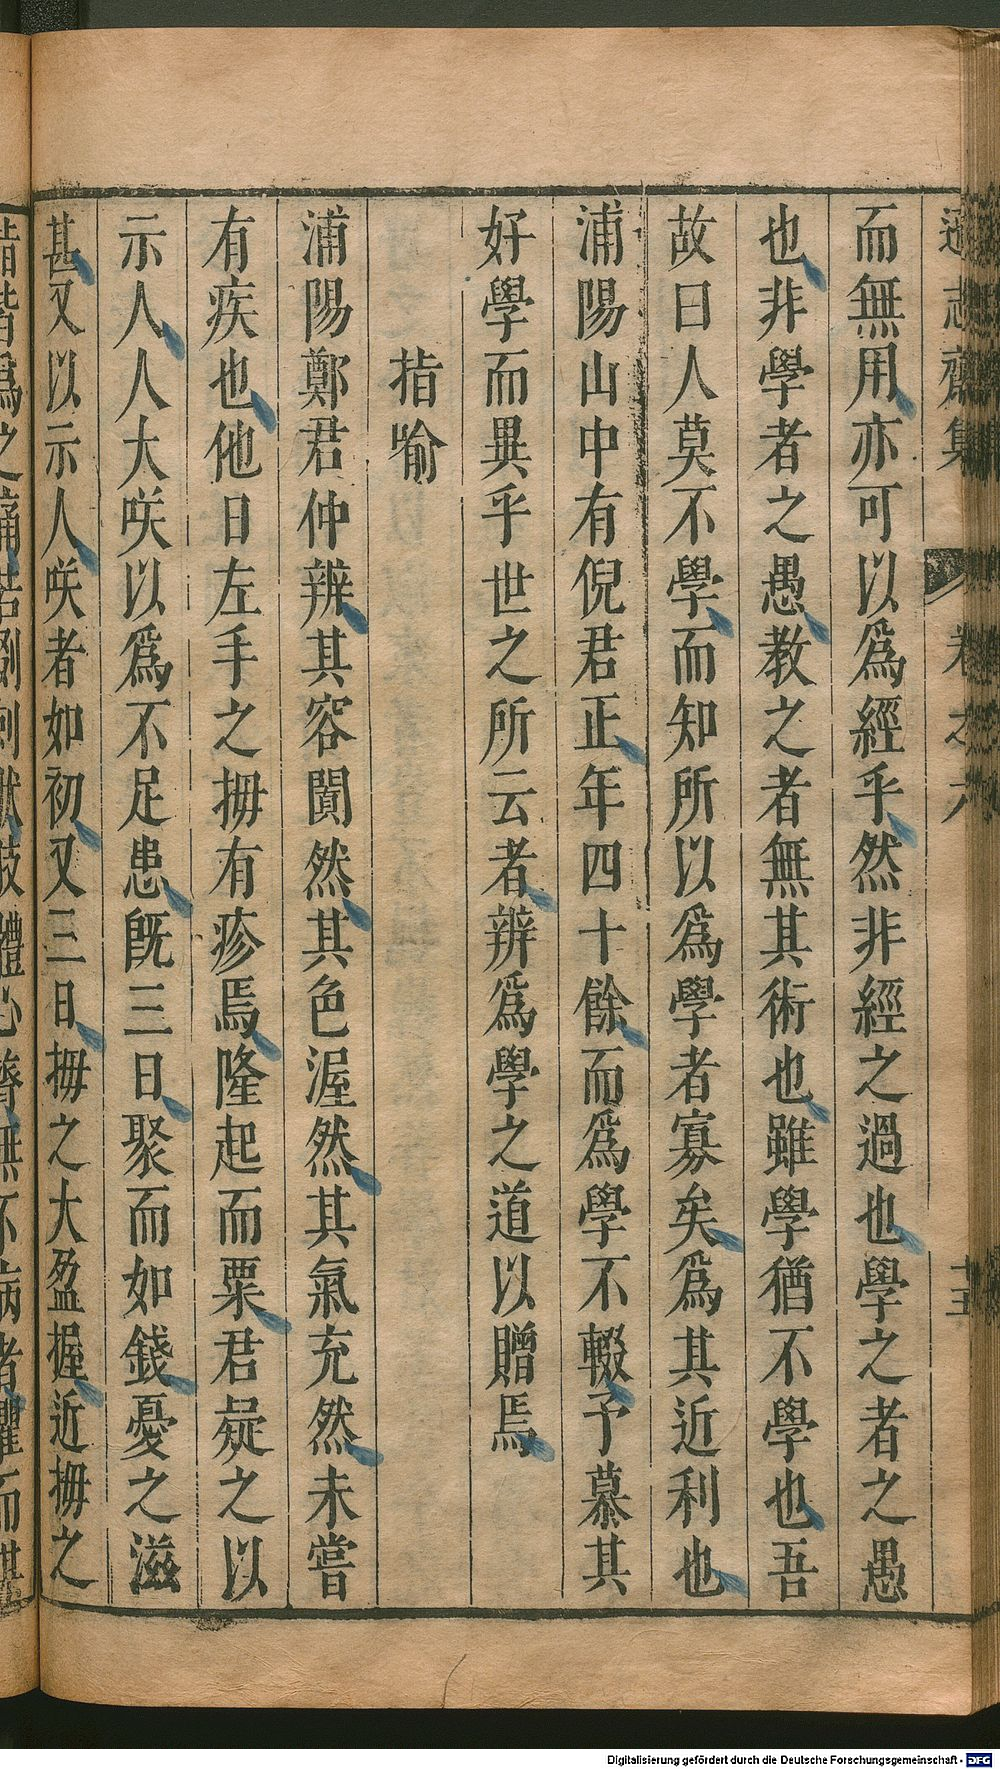 遜志齋集
卷之六
十五
而無用亦可以爲經乎然非經之過也學之者之愚
也非學者之愚教之者無其術也雖學猶不學也吾
故曰人莫不學而知所以爲學者寡矣爲其近利也
浦陽山中有倪君正年四十餘而爲學不輟予慕其
好學而異乎世之所云者辨爲學之道以贈焉
指喻
浦陽鄭君仲辨其容闐然其色渥然其氣充然未嘗
有疾也他日左手之拇有疹焉隆起而粟君疑之以
示人人大咲以爲不足患旣三日聚而如錢憂之滋
甚又以示人咲者如初又三日拇之大盈握近拇之
指皆爲之痛若剟刺狀肢體心膂無不病者懼而謀
Digitalisierung gefördert durch die Deutsche Forschungsgemeinschaft - DFG